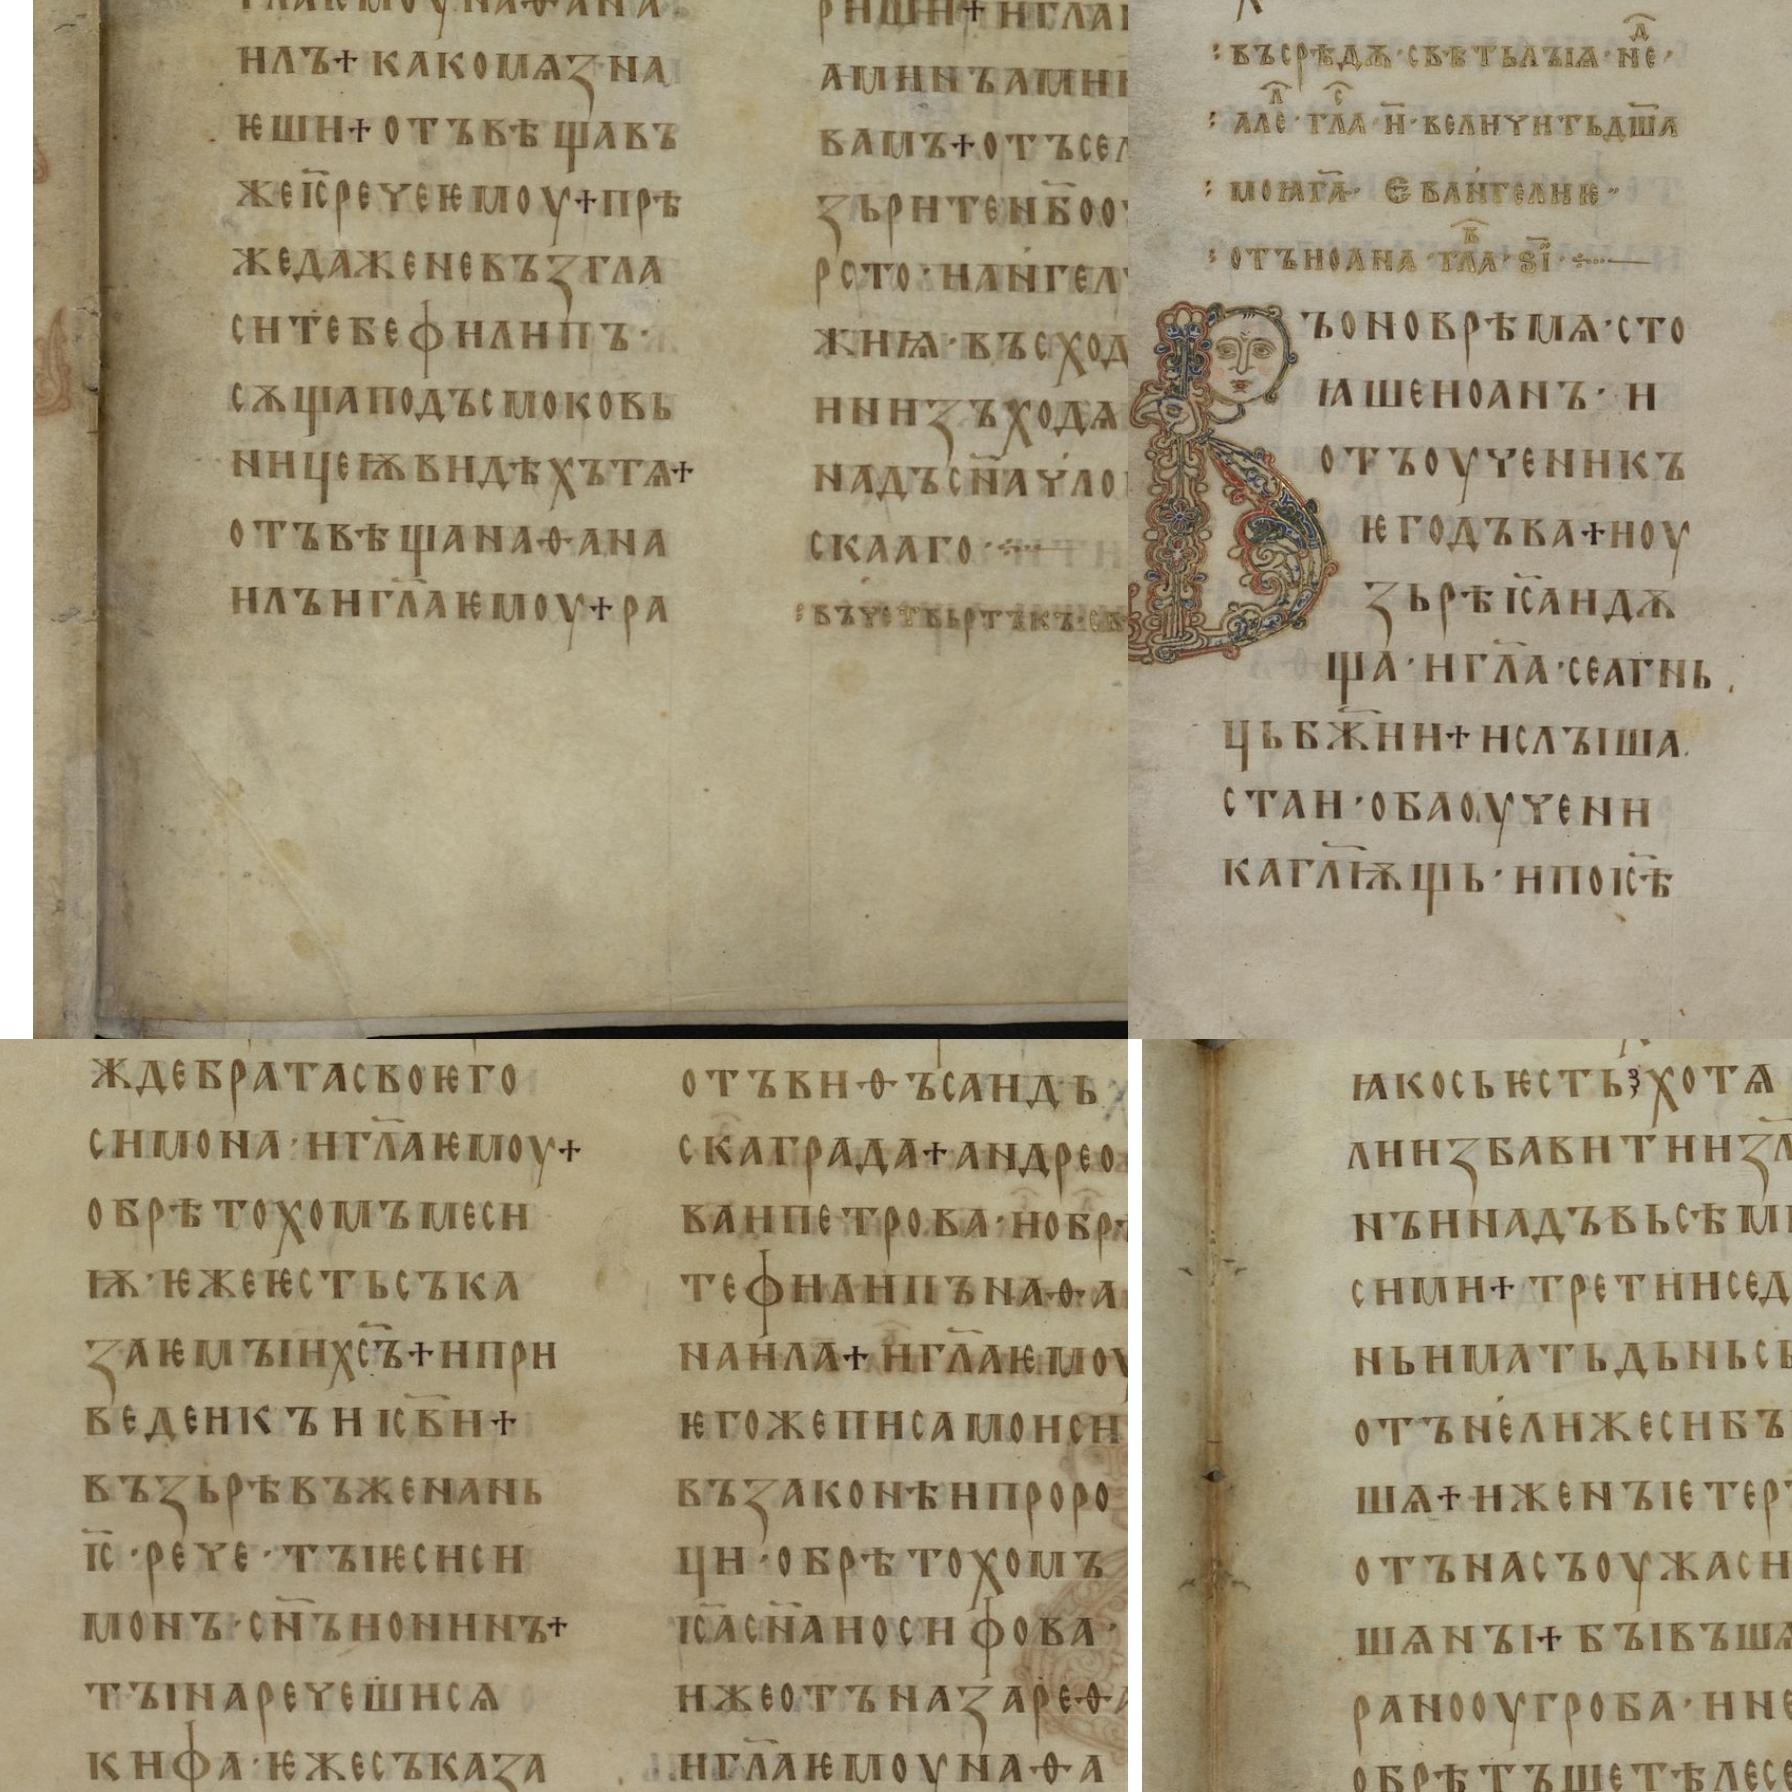 нлъ+ какомѧзна
ѥши+отъвѣщавъ
жеі҃сречеѥмоу+прѣ
жедаженевъзгла
ситебефилипъ·
сѫщаподъсмоковь
ницеѭвидѣхътѧ+
отъвѣщанаѳана
илъигл҃аѥмоу+ра
аминъамин
вамъ+отъсел
зьритенб҃оо
рсто·ианьгел
жиꙗ·въсход
иинзъходѧ
надъсн҃ачло
скааго
въчетвьртъкъ·св
въсрѣдѫ·свѣтьлыꙗ·не҃д·
але҃л·гла҃с·и҃·величитьдш҃а
моꙗг҃а· Евангелиѥ
отъиоана·гл҃а҃в·ѕ҃і·
ъоноврѣмѧ·сто
ꙗшеиоанъ·и
отъоученикъ
ѥгодъва+иоу
зьрѣі҃саидѫ
ща·игл҃а·сеагнь
цьбж҃ии+ислыша
стаи·обаоучени
кагл҃ѭщь·ипоі҃сѣ
ждебратасвоѥго
симона·игл҃аѥмоу+
обрѣтохомъмеси
ѭ·ѥжеѥстьсъка
заѥмыихс҃ъ+ипри
ведеикъиі҃сви+
възьрѣвъженань
і҃с·рече·тыѥсиси
монъ·сн҃ъионинъ+
тынаречешисѧ
кифа·ѥжесъказа
отъвиѳъсаидь
скаграда+андрео
ваипетрова·иобрѣ
тефилипънаѳа
наила+игл҃аѥмоу
ѥгожеписамоиси
възаконѣипроро
ци·обрѣтохомъ
і҃сасн҃аиосифова·
ижеотъназареѳа
игл҃аѥмоунаѳа
ꙗкосьѥсть·хотѧ
лиизбавитиизл҃
нъинадъвьсѣм
сими+третиисед
ньиматьдьньсь
отънелижесибъ
шѧ+иженыетер
отънасъоужаси
шѧны+бывъшѧ
ранооугроба·ине
обрѣтъшетѣлес